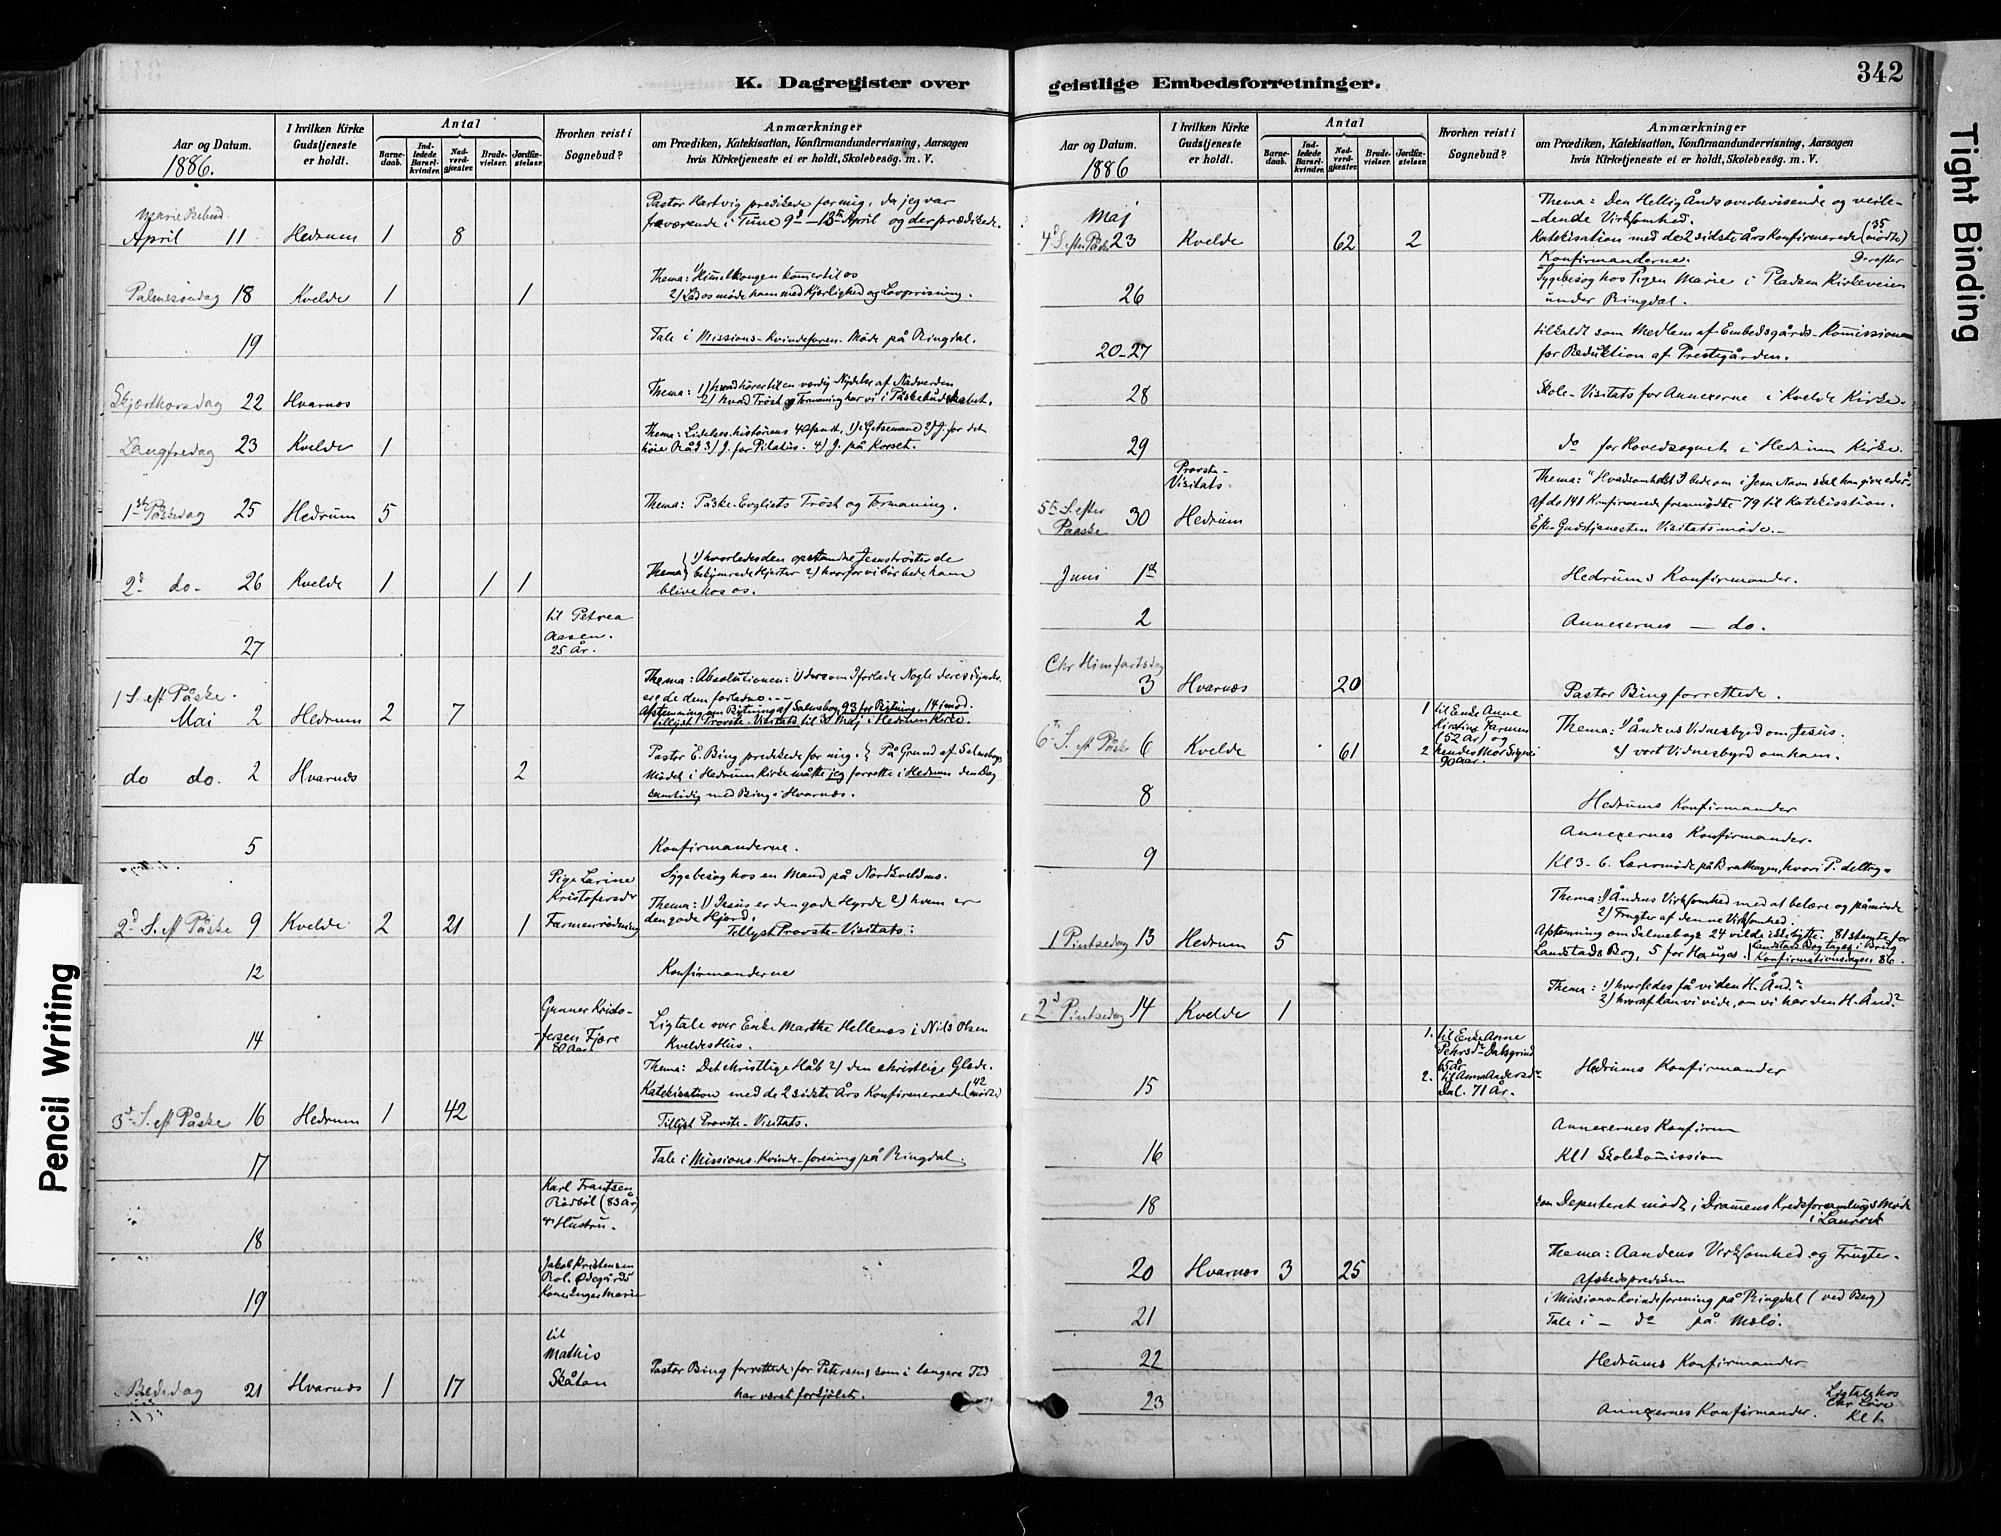 K. Dagregister over
Aar og Datum.
1886.
I hvilken Kirke Gudstjeneste er holdt.
Antal
Barnedaab.
Indledede Barselkvinder.
Nadverdgjester.
Brudevielser.
Jordfæstelser.
Hvorhen reist i Sognebud?
Anmærkninger
om Prædiken, Katekisation, Konfirmandundervisning, Aarsagen
hvis Kirketjeneste ei er holdt, Skolebesøg. m. V.
Marie Bebud.
April 11 Hedrum 1 8 Pastor Hartvig predikede for mig, da jeg var
fraværende i Tune 9d-13d April og der prædikede.
Palmesöndag 18 Kvelde 1 1 Thema: 1) Himmelkongen kommer til os
2) Lad os møde ham med Kjærlighed og Lovprisning.
19 Tale i Missions-Kvindeforen. Møde på Ringdal.
Skjærthorsdag 22 Hvarnæs Thema: 1) hvad hører til en værdig Nydelse af Nadverden
2) hvad Trøst og Formaning har vi i Påskebudskabet.
Langfredag 23 Kvelde 1 Thema: Lidelseshistoriens 4 Afsnitt. 1) i Getsemane 2) J. for det
høie Råd 3) J. for Pilatus. 4) J. på Korset.
1ste Påskedag 25 Hedrum 5 Thema: Påske-Evgliets Trøst og Formaning.
2d do. 26 Kvelde 1 1 1 Thema 1) hvorledes den opstandne Jesus trøster de
bekymrede Hjerter 2) hvorfor vi bør bede ham
blive hos os.
27 til Petrea
Aasen.
25 År.
1 S. eft Påske.
Mai 2 Hedrum 2 7 Thema: Absolutionen: 1) dersom I forlade Nogle deres Synder
ere de dem forladne. --
Afstemning om Bytning af Salmebog 93 for Bytning, 14 imod.
tillyst Provste-Visitats til 30 Maj i Hedrum Kirke.
do do. 2 Hvarnæs 2 Pastor E. Bing predikede for mig. På Grund af Salmebogs
Mødet i Hedrum Kirke måtte jeg forrette i Hedrum den Dag
samtidig med Bing i Hvarnæs.
5 Konfirmanderne.
Pige Larine
Kristofersdr
Farmenrödning
Sygebesøg hos en Mand på Nordkveldmo.
2d S. eft Påske 9 Kvelde 2 21 1 Thema: 1) Jesus er den gode Hyrde 2) hvem er
den gode Hjord.
Tillyst Provste-Visitats:
12 Konfirmanderne
14 Gunner Kristo-
fersen Fjære
80 Aar
Ligtale over Enke Marthe Hellenes i Nils Olsen
Kveldes Hus.
3d S. eft Påske 16 Hedrum 1 42 Thema: Det christlige Håb 2) den christlige Glæde.
Katekisation med de 2 sidste Års Konfirmerede (42 mødte)
Tillyst Provste-Visitats.
17 Tale i Missions-Kvinde-forening på Ringdal.
18 Karl Frantsen
Rödböl (83 År)
Hustru.
19 Jakob Kristensen
Ødegårds
Kone Inger Marie
Bededag 21 Hvarnæs 1 17 til
Mathis
Skåtan
Pastor Bing forrettede for Petersen, som i længere Tid
har været forkjølet.
geistlige Embedsforretninger.
342
Aar og Datum.
1886
I hvilken Kirke Gudstjeneste er holdt.
Antal
Barnedaab.
Indledede Barselkvinder.
Nadverdgjester.
Brudevielser.
Jordfæstelser.
Hvorhen reist i Sognebud?
Anmærkninger
om Prædiken, Katekisation, Konfirmandundervisning, Aarsagen
hvis Kirketjeneste ei er holdt, Skolebesøg. m. V.
Maj
4d S. eft Påske 23 Kvelde 62 2 Thema: Den Hellig Ånds overbevisende og veile-
-dende Virksomhed.
Katekisation med de 2 sidste Års Konfirmerede (35 mødte)
Konfirmanderne. Derefter
26 Sygebesøg hos Pigen Marie i Pladsen Kirkeveien
under Ringdal.
20-27 tilkaldt som Medlem af Embedsgårds-Kommissionen
for Reduktion af Prestegården.
28 Skole-Visitats for Annexerne i Kvelde Kirke.
29 do for Hovedsognet i Hedrum Kirke.
Provste-
Visitats
5te S. efter
Paaske 30 Hedrum Thema: "Hvadsomhelst I bede om i Jesu Navn skal han give eder".
af de 141 Konfirmerede fremmødte 79 til Katekisation.
Eft. Gudstjenesten Visitatsmøde.-
Juni 1st Hedrums Konfirmander.
2 Annexernes — do.
Chr Himfartsdag
3 Hvarnæs 20 Pastor Bing forrettede.
6te S. eft Påske 6 Kvelde 61 1 til Enke Anne
Kirstine Farmen
(52 År) og
2 hendes Mor Signe
90 Aar.
Thema: 1) Åndens Vidnesbyrd om Jesus.
2) vort Vidnesbyrd om ham.
8 Hedrums Konfirmander
9 Annexernes Konfirmander.
Kl 3-6. Lærermøde på Brathagen, hvori P. deltog.
1 Pintsedag 13 Hedrum 5 Thema: 1) Åndens Virksomhed med at belære og påminde
2) Frugter af denne Virksomhed.
Afstemning om Salmebog: 24 vilde ikke bytte. 81 stemte for
Landstads Bog, 5 for Hauges. Landstads Bog tages i Brug
Konfirmationsdagen 86.
2d Pintsedag 14 Kvelde 1 Thema: 1) hvorledes få vi den H. Ånd?
2) hvoraf kan vi vide, om vi har den H. Ånd?
15 1. til Enke Anne
Pehrsdr Dalsgrind
65 år
2. til Anna Andersdr
Dal. 71 År.
Hedrums Konfirmander
16 Annexernes Konfirm
Kl 1 Skolekommission
18 som Deputeret mødt i Drammens Kredsforsamlings Møde
i Laurvik
20 Hvarnæs 3 25 Thema: Aandens Virksomhed og Frugter.
Afskedspreken
21 i Missions-Kvindeforening på Ringdal (ved Berg)
Tale i — do på Melø.
22 Hedrums Konfirmander
23 Annexernes Konfirmander. Ligtale hos
Chr Løve
Kl 1.
Pencil Writing
Tight Binding